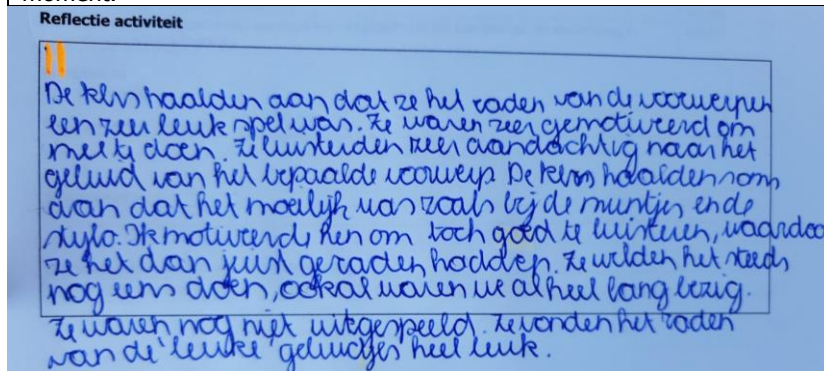 moment.
Reflectie activiteit
11
De klrs haalden aan dat ze het raden van de voorwerpen
een zeer leuk spel was. Ze waren zeer gemotiveerd om
mee te doen. Ze luisterden zeer aandachtig naar het
geluid van het bepaalde voorwerp. De klrs haalden soms
aan dat het moeilijk was zoals bij de muntjes en de
stylo. Ik motiveerde hen om toch goed te luisteren, waardoo
ze het dan juist geraden hadden. Ze wilden het steeds
nog eens doen, ook al waren we al heel lang bezig.
Ze waren nog niet uitgespeeld. Ze vonden het raden
van de 'leuke' geluidjes heel leuk.